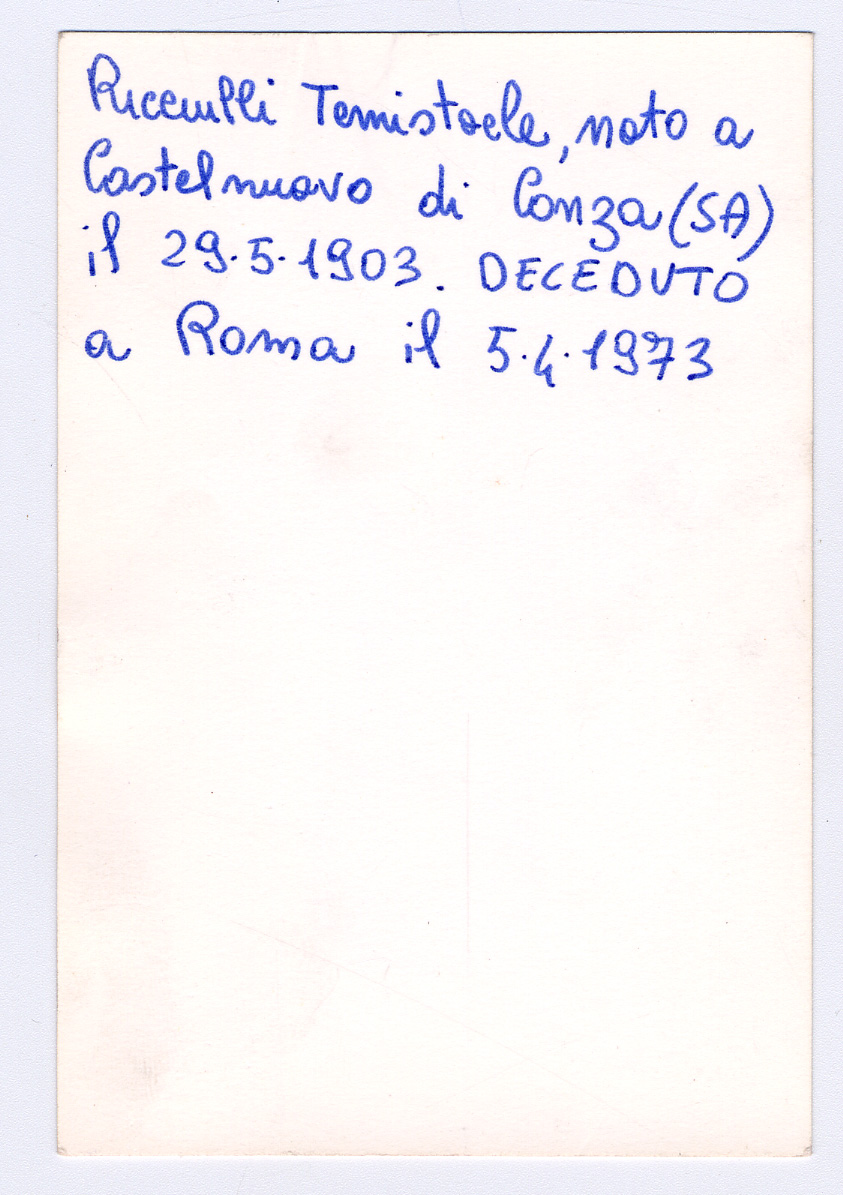 Ricciulli Temistocle, nato a
Castelnuovo di Conza (SA)
il 29.5.1903. DECEDUTO
a Roma il 5.4.1973